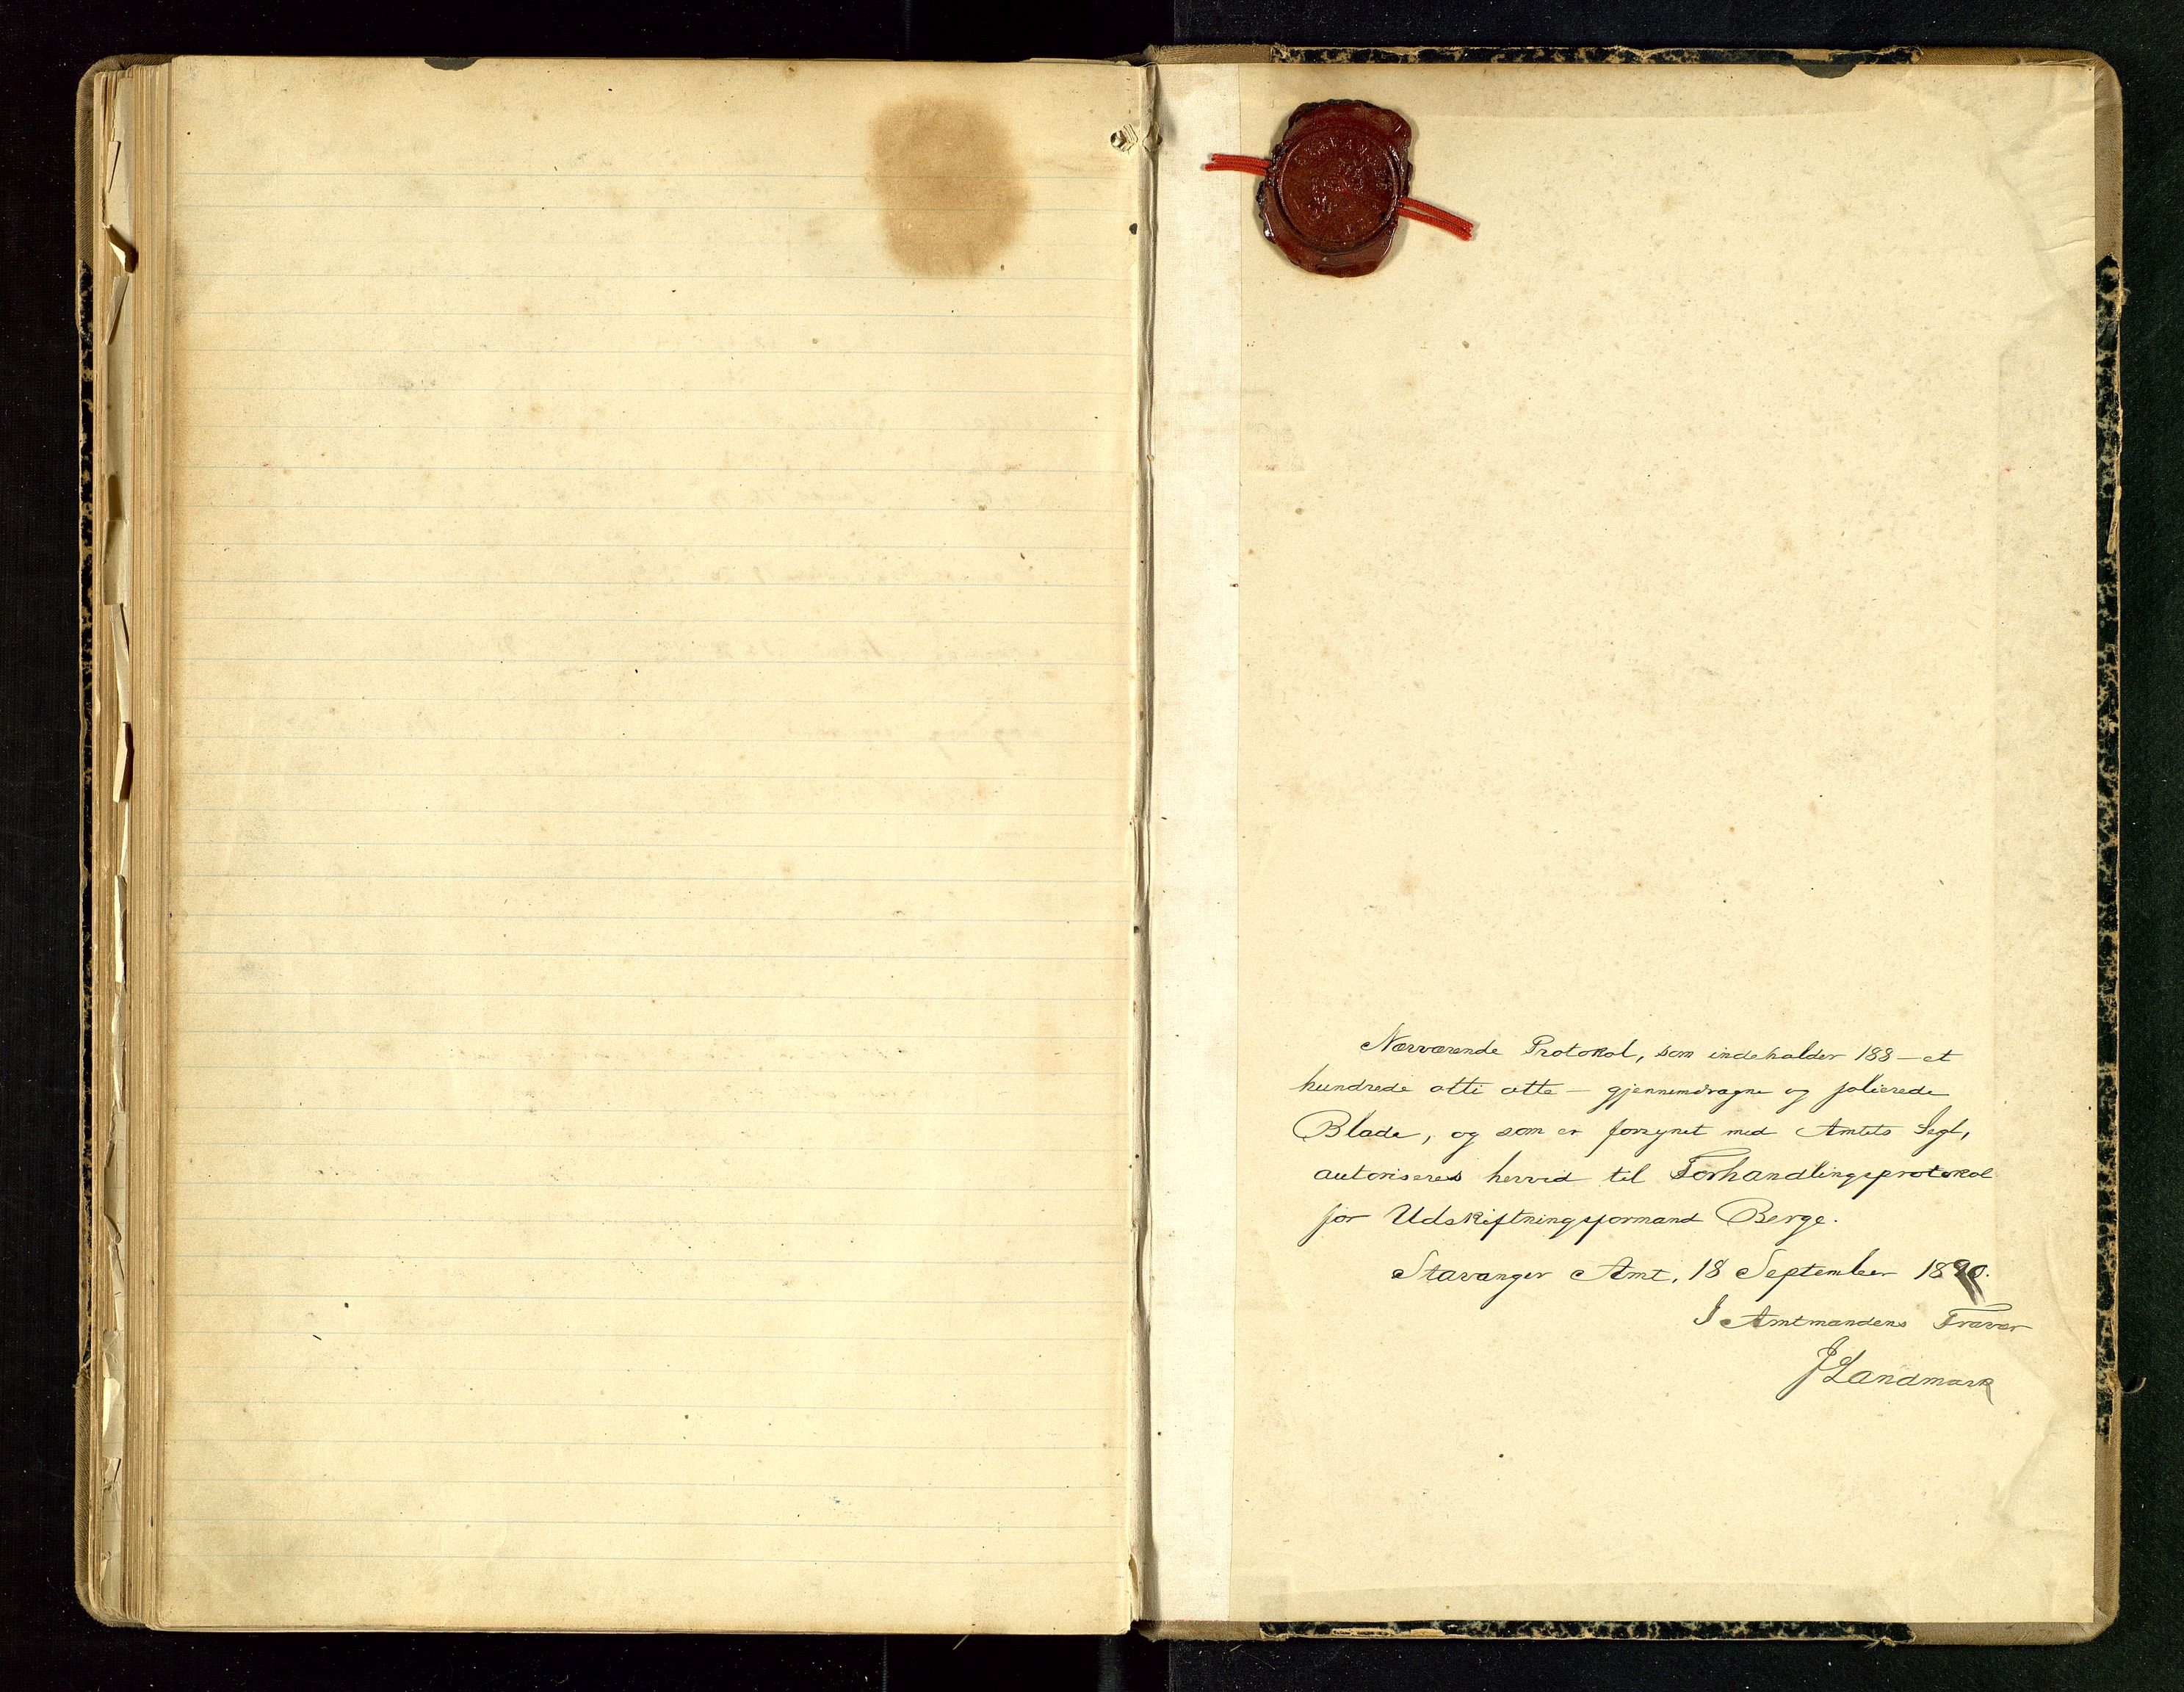 Nærværende Protokol, som indeholder 188 – et
hundrede otti otte – gjennemdragne og folierede
Blade, og som er forsynet med Amtets Segl,
autoriseres herved til Forhandlingsprotokol
for Udskiftningsformand Berge.
Stavanger Amt, 18 September 1890.
I Amtmandens Fravær
J Landmark